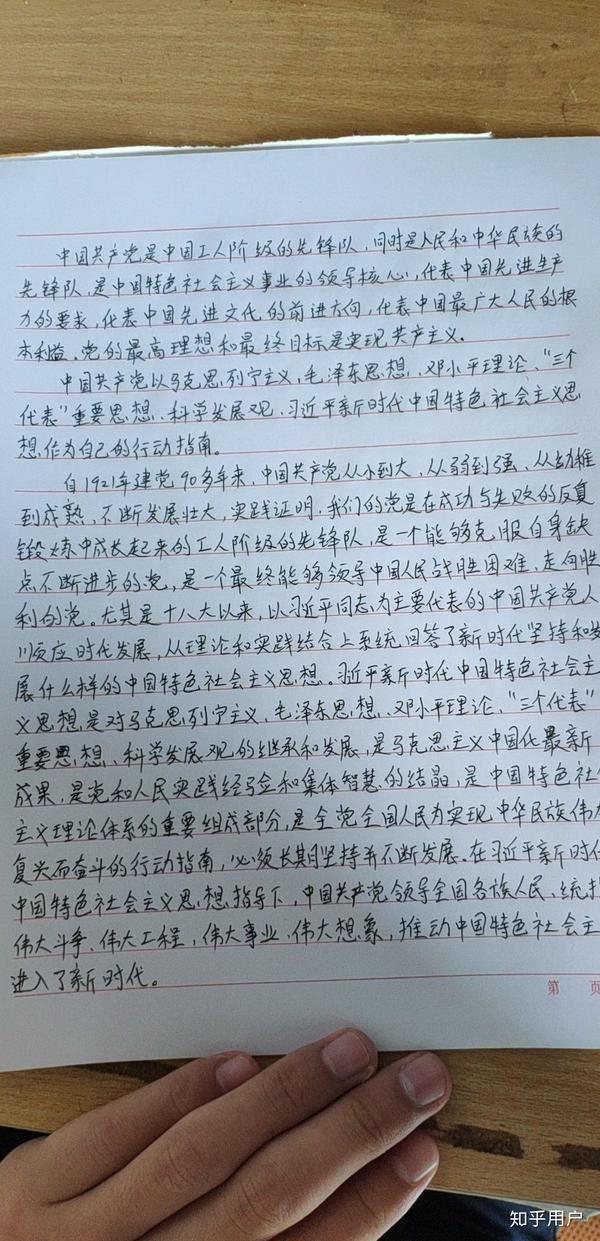 中国共产党是中国工人阶级的先锋队，同时是人民和中华民族的
先锋队，是中国特色社会主义事业的领导核心，代表中国先进生产
力的要求，代表中国先进文化的前进方向，代表中国最广大人民的根
本利益。党的最高理想和最终目标是实现共产主义。
中国共产党以马克思列宁主义、毛泽东思想、邓小平理论、“三个
代表”重要思想、科学发展观、习近平新时代中国特色社会主义思
想作为自己的行动指南。
自1921年建党90多年来，中国共产党从小到大，从弱到强，从幼稚
到成熟，不断发展壮大，实践证明，我们的党是在成功与失败的反复
锻炼中成长起来的工人阶级的先锋队，是一个能够克服自身缺
点不断进步的党，是一个最终能够领导中国人民战胜困难、走向胜
利的党。尤其是十八大以来，以习近平同志为主要代表的中国共产党人
顺应时代发展，从理论和实践结合上系统回答了新时代坚持和发
展什么样的中国特色社会主义思想。习近平新时代中国特色社会主
义思想是对马克思列宁主义、毛泽东思想、邓小平理论、“三个代表”
重要思想、科学发展观的继承和发展，是马克思主义中国化最新
成果，是党和人民实践经验和集体智慧的结晶，是中国特色社会
主义理论体系的重要组成部分，是全党全国人民为实现中华民族伟大
复兴而奋斗的行动指南，必须长期坚持并不断发展。在习近平新时代
中国特色社会主义思想指导下，中国共产党领导全国各族人民，统揽
伟大斗争、伟大工程、伟大事业、伟大想象，推动中国特色社会主
进入了新时代。
第 页
知乎用户